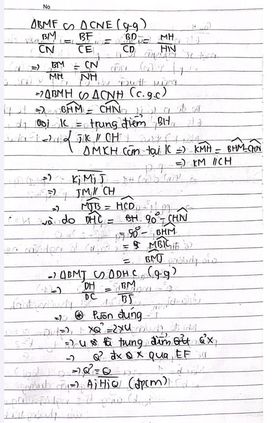 No
ΔBMF ∽ ΔCNE (g-g)
BM/CN = BF/CE = BD/CD = MH/HN
⇒ BM/MH = CN/NH
→ ΔBMH ∽ ΔCNH (c.g.c)
⇒ BHM = CHN
Gọi K = trung điểm BH
⇒ { JK // CH
ΔMKH cân tại K ⇒ KMH = BHM = CHN
⇒ KM // CH
⇒ K, M, J
⇒ JM // CH
⇒ MJB = HCD
và do DHC = 90° - CHN
= 90° - BHM
= MBK
= BMJ
→ ΔBMJ ∽ ΔDHC (g-g)
→ DH/DC = BM/BJ
⇒
⇒ XQ' = 2XU
⇒ U là trung điểm Q'X
→ Q' đx X qua EF
⇒ Q' = Q
⇒ A, H, Q (đpcm)